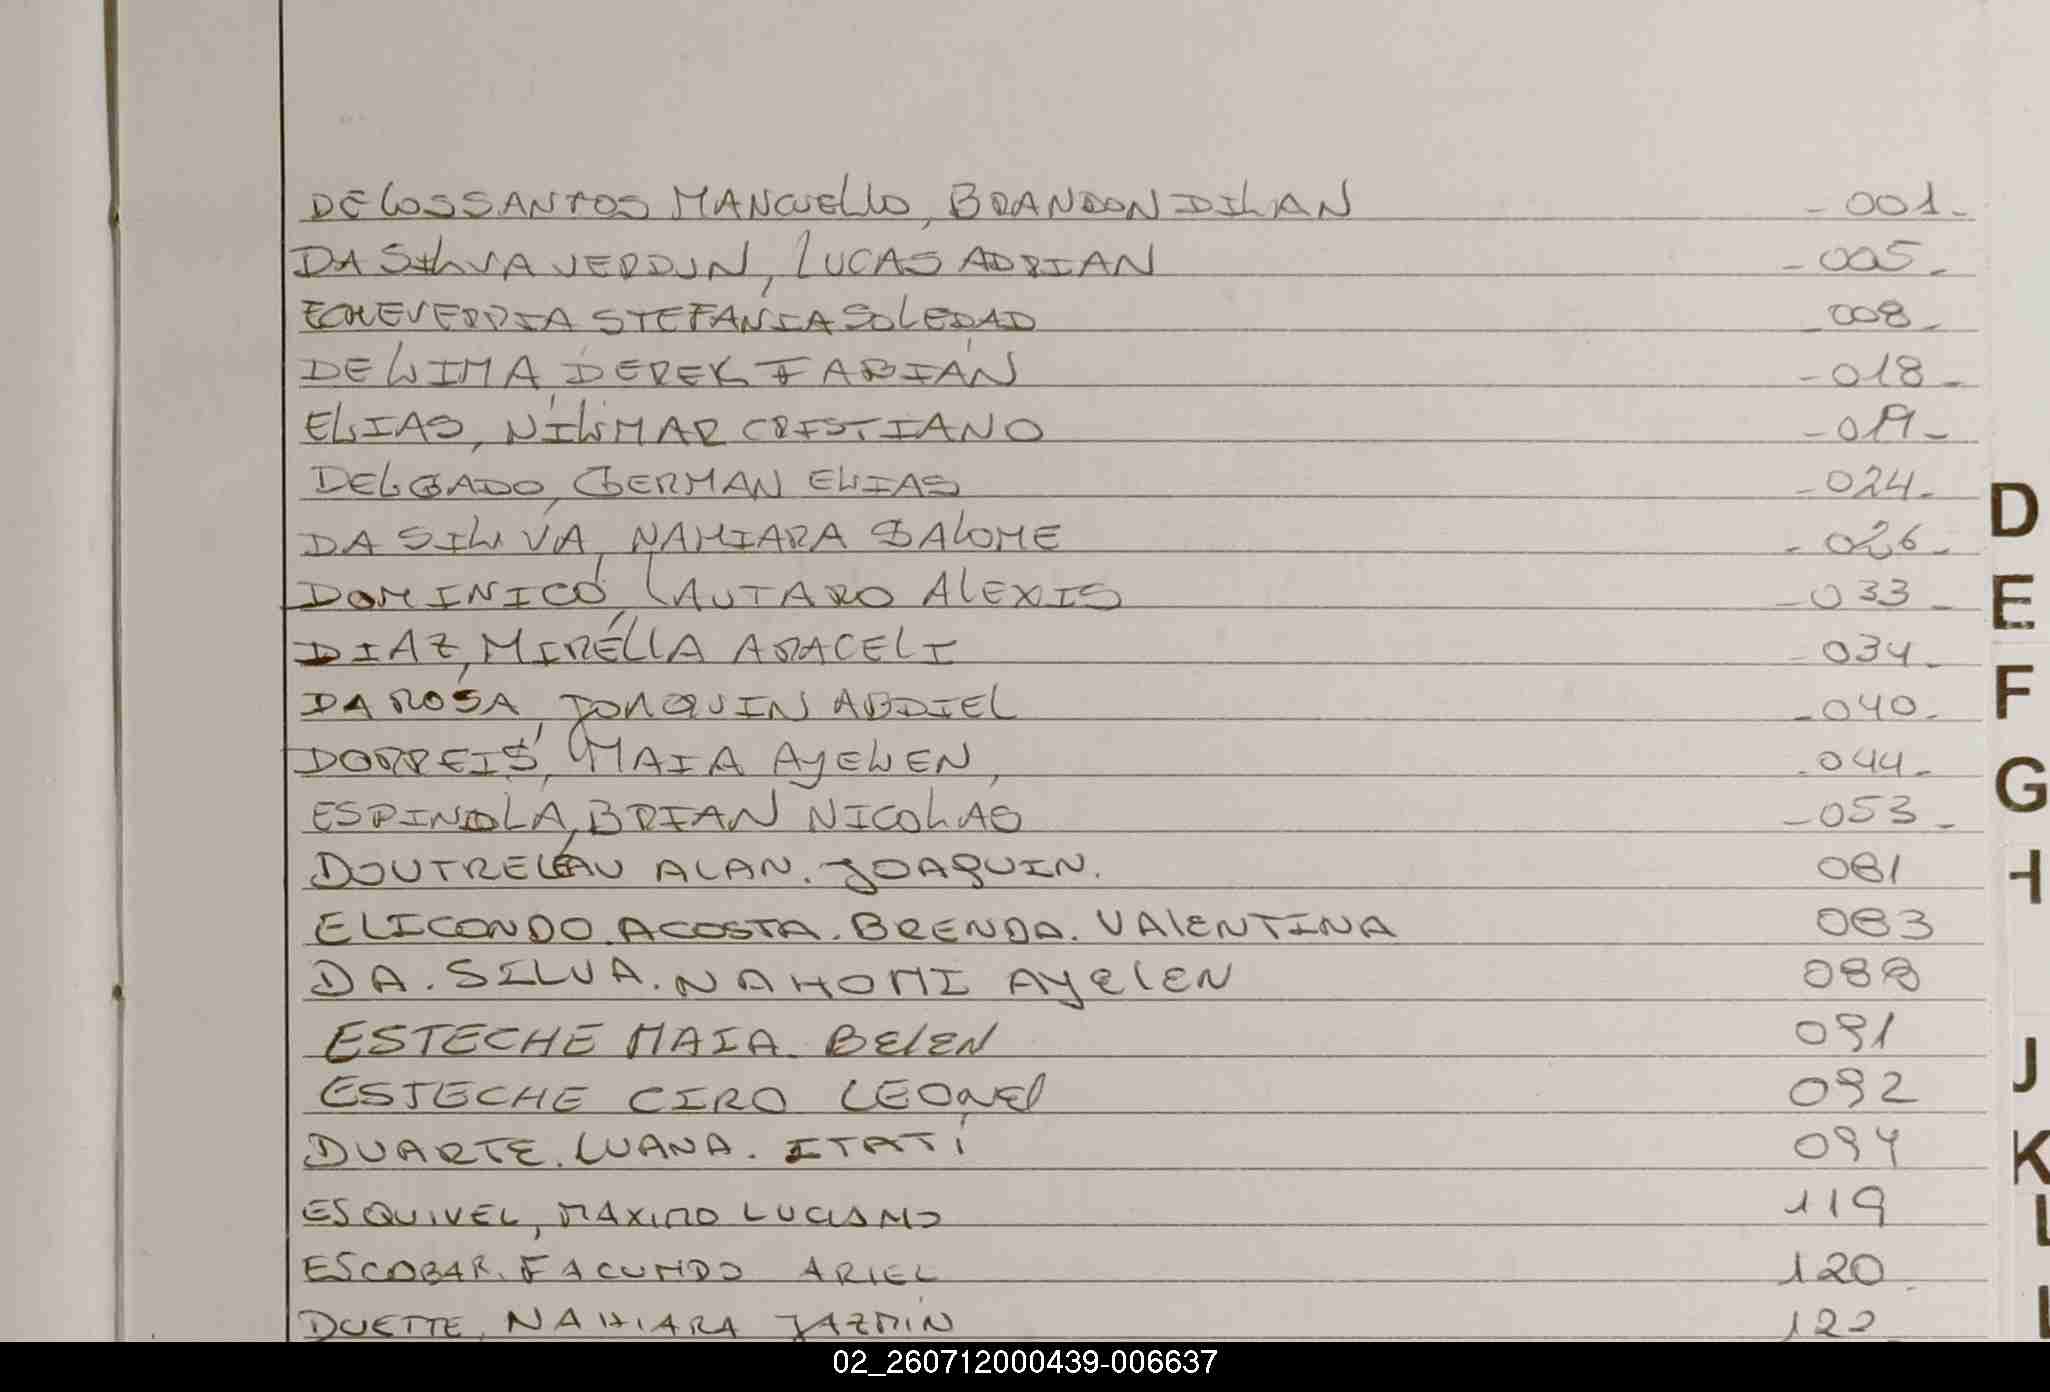 DE LOS SANTOS MANCUELLO, BRANDON DILAN - 001 -
DA SILVA VERDUN, LUCAS ADRIAN - 005 -
ECHEVERRIA STEFANÍA SOLEDAD - 008 -
DE LIMA, DEREK FABIÁN - 018 -
ELIAS, NILMAR CRISTIANO - 019 -
DELGADO, GERMAN ELIAS - 024 -
DA SILVA, NAHIARA SALOME - 026 -
DOMINICO, LAUTARO ALEXIS - 033 -
DIAZ, MIRELLA ARACELI - 034 -
DA ROSA, JOAQUIN ABDIEL - 040 -
DORREIS, MAIA AYELEN, - 044 -
ESPINDOLA, BRIAN NICOLAS - 053 -
DOUTRELEAU ALAN. JOAQUIN. 081
ELICONDO. ACOSTA. BRENDA. VALENTINA 083
DA. SILVA. NAHOMI AYELEN 088
ESTECHE MAIA. BELEN 091
ESTECHE CIRO LEONEL 092
DUARTE. LUANA. ITATÍ 094
ESQUIVEL, MAXIMO LUCIANO 119
ESCOBAR, FACUNDO ARIEL 120
DUETTE, NAHIARA JAZMÍN 122
D
E
F
G
H
J
K
L
02_260712000439-006637